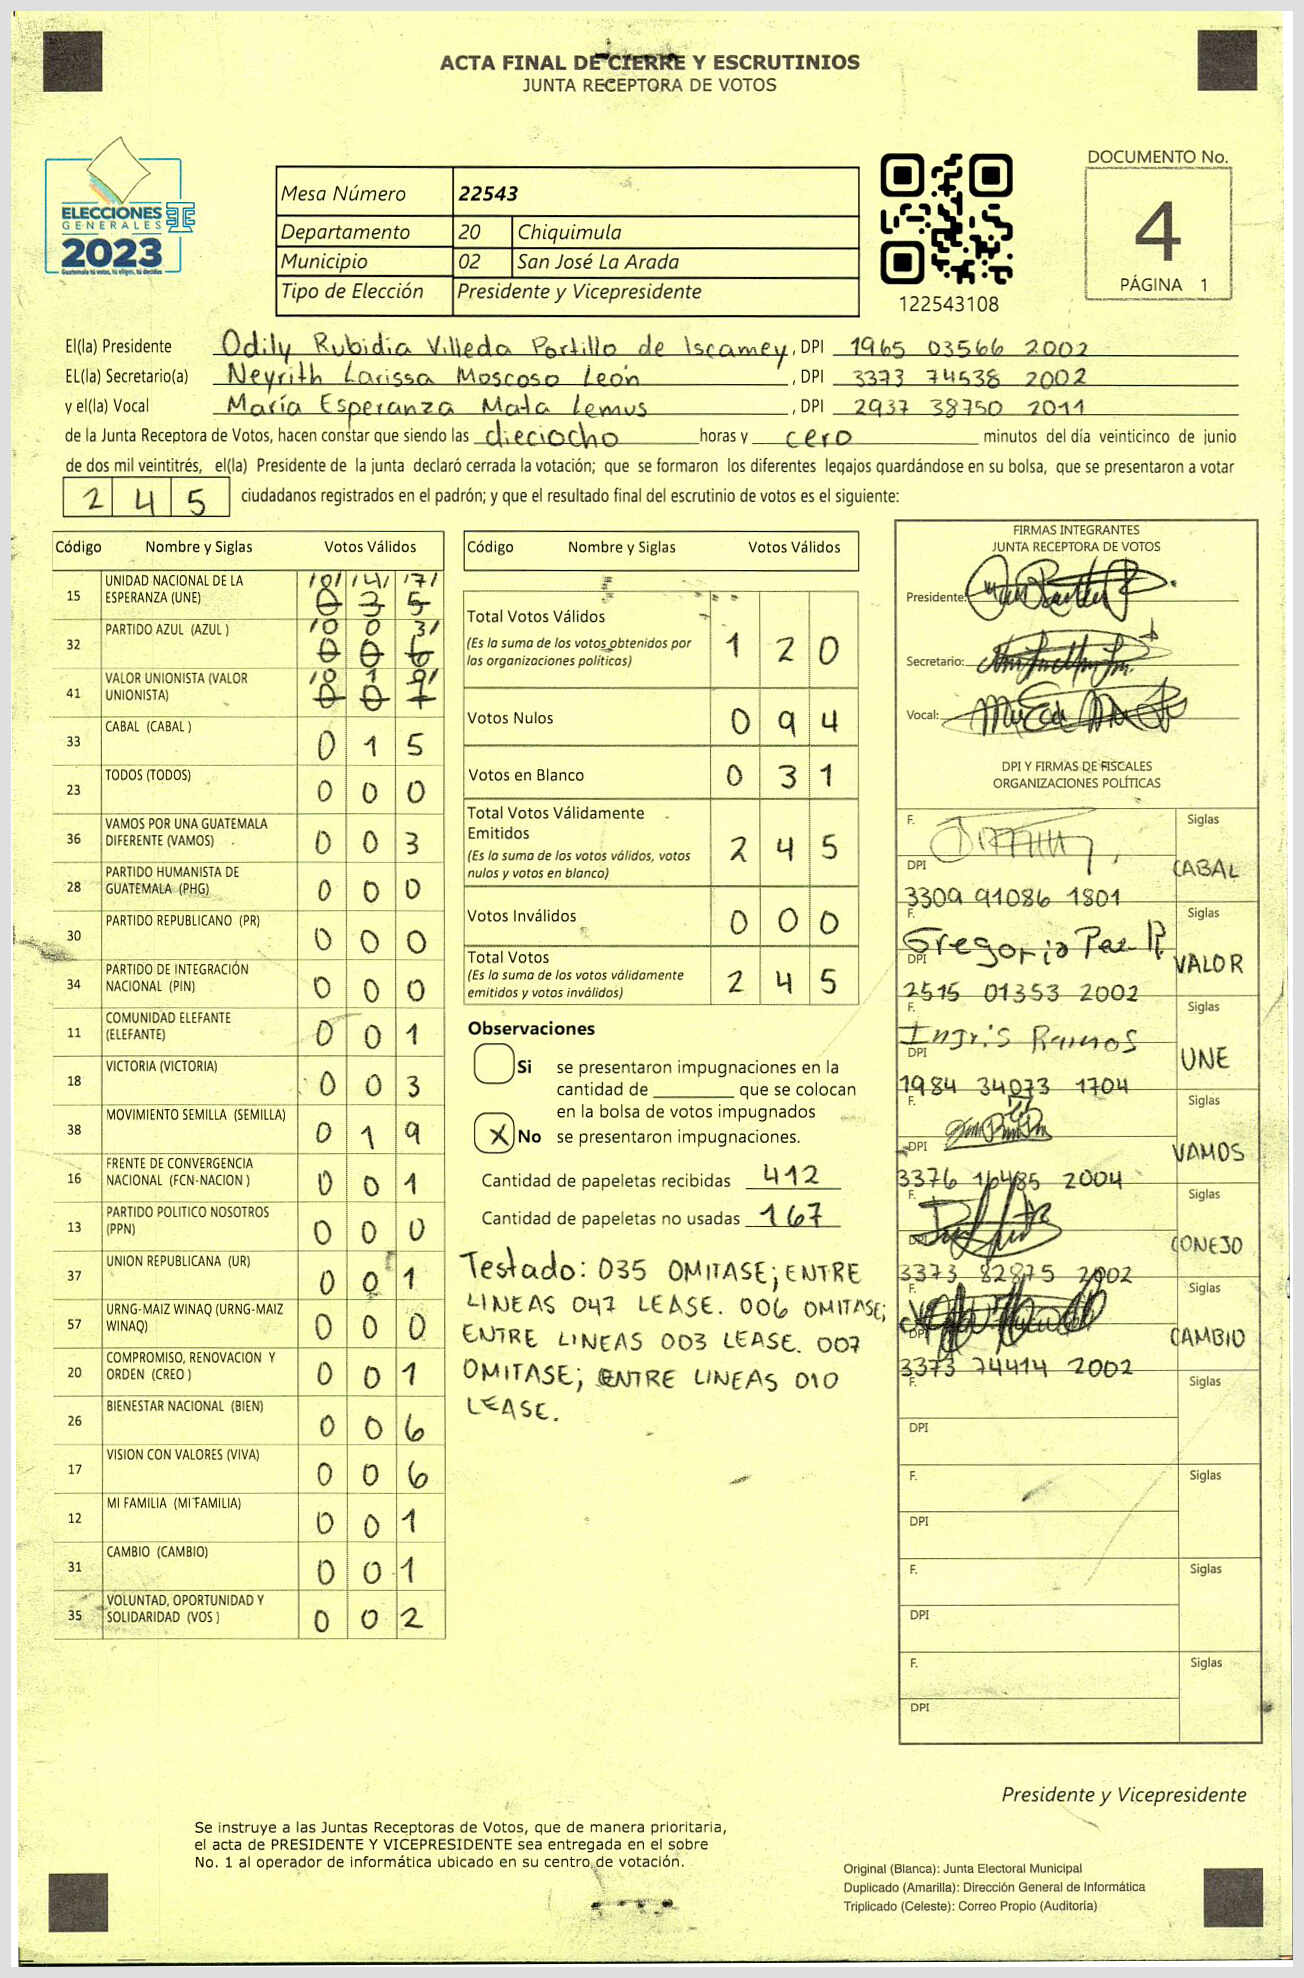 ACTA FINAL DE CIERRE Y ESCRUTINIOS
JUNTA RECEPTORA DE VOTOS
ELECCIONES
GENERALES
2023
Guatemala tú votas, tú eliges, tú decides
Mesa Número 22543
Departamento 20 Chiquimula
Municipio 02 San José La Arada
Tipo de Elección Presidente y Vicepresidente
122543108
DOCUMENTO No.
4
PÁGINA 1
El(la) Presidente Odily Rubidia Villeda Portillo de Iscamey, DPI 1965 03566 2002
EL(la) Secretario(a) Neyrith Larissa Moscoso León, DPI 3373 74538 2002
y el(la) Vocal María Esperanza Mata Lemus, DPI 2937 38750 2011
de la Junta Receptora de Votos, hacen constar que siendo las dieciocho horas y cero minutos del día veinticinco de junio
de dos mil veintitrés, el(la) Presidente de la junta declaró cerrada la votación; que se formaron los diferentes legajos guardándose en su bolsa, que se presentaron a votar
2 4 5 ciudadanos registrados en el padrón; y que el resultado final del escrutinio de votos es el siguiente:
Código Nombre y Siglas Votos Válidos
15 UNIDAD NACIONAL DE LA ESPERANZA (UNE) /0/ /4/ /7/
0 3 5
32 PARTIDO AZUL (AZUL ) /0 0 3/
0 0 6
41 VALOR UNIONISTA (VALOR UNIONISTA) /0 1 0/
0 0 7
33 CABAL (CABAL ) 0 1 5
23 TODOS (TODOS) 0 0 0
36 VAMOS POR UNA GUATEMALA DIFERENTE (VAMOS) 0 0 3
28 PARTIDO HUMANISTA DE GUATEMALA (PHG) 0 0 0
30 PARTIDO REPUBLICANO (PR) 0 0 0
34 PARTIDO DE INTEGRACIÓN NACIONAL (PIN) 0 0 0
11 COMUNIDAD ELEFANTE (ELEFANTE) 0 0 1
18 VICTORIA (VICTORIA) 0 0 3
38 MOVIMIENTO SEMILLA (SEMILLA) 0 1 9
16 FRENTE DE CONVERGENCIA NACIONAL (FCN-NACION ) 0 0 1
13 PARTIDO POLITICO NOSOTROS (PPN) 0 0 0
37 UNION REPUBLICANA (UR) 0 0 1
57 URNG-MAIZ WINAQ (URNG-MAIZ WINAQ) 0 0 0
20 COMPROMISO, RENOVACION Y ORDEN (CREO ) 0 0 1
26 BIENESTAR NACIONAL (BIEN) 0 0 6
17 VISION CON VALORES (VIVA) 0 0 6
12 MI FAMILIA (MI FAMILIA) 0 0 1
31 CAMBIO (CAMBIO) 0 0 1
35 VOLUNTAD, OPORTUNIDAD Y SOLIDARIDAD (VOS ) 0 0 2
Código Nombre y Siglas Votos Válidos
Total Votos Válidos 1 2 0
(Es la suma de los votos obtenidos por
las organizaciones políticas)
Votos Nulos 0 9 4
Votos en Blanco 0 3 1
Total Votos Válidamente
Emitidos 2 4 5
(Es la suma de los votos válidos, votos
nulos y votos en blanco)
Votos Inválidos 0 0 0
Total Votos 2 4 5
(Es la suma de los votos válidamente
emitidos y votos inválidos)
Observaciones
Si se presentaron impugnaciones en la
cantidad de ________ que se colocan
en la bolsa de votos impugnados
X No se presentaron impugnaciones.
Cantidad de papeletas recibidas 412
Cantidad de papeletas no usadas 167
Testado: 035 OMITASE; ENTRE
LINEAS 047 LEASE. 006 OMITASE;
ENTRE LINEAS 003 LEASE. 007
OMITASE; ENTRE LINEAS 010
LEASE.
FIRMAS INTEGRANTES
JUNTA RECEPTORA DE VOTOS
Presidente:
Secretario:
Vocal:
DPI Y FIRMAS DE FISCALES
ORGANIZACIONES POLÍTICAS
F. Siglas
DPI CABAL
3309 91086 1801
F. Siglas
Gregorio Paz R
DPI VALOR
2515 01353 2002
F. Siglas
Ingris Ramos
DPI UNE
1984 34073 1704
F. Siglas
DPI VAMOS
3376 16485 2004
F. Siglas
DPI CONEJO
3373 82875 2002
F. Siglas
DPI CAMBIO
3373 74414 2002
F. Siglas
DPI
F. Siglas
DPI
F. Siglas
DPI
F. Siglas
DPI
Presidente y Vicepresidente
Se instruye a las Juntas Receptoras de Votos, que de manera prioritaria,
el acta de PRESIDENTE Y VICEPRESIDENTE sea entregada en el sobre
No. 1 al operador de informática ubicado en su centro de votación.
Original (Blanca): Junta Electoral Municipal
Duplicado (Amarilla): Dirección General de Informática
Triplicado (Celeste): Correo Propio (Auditoría)